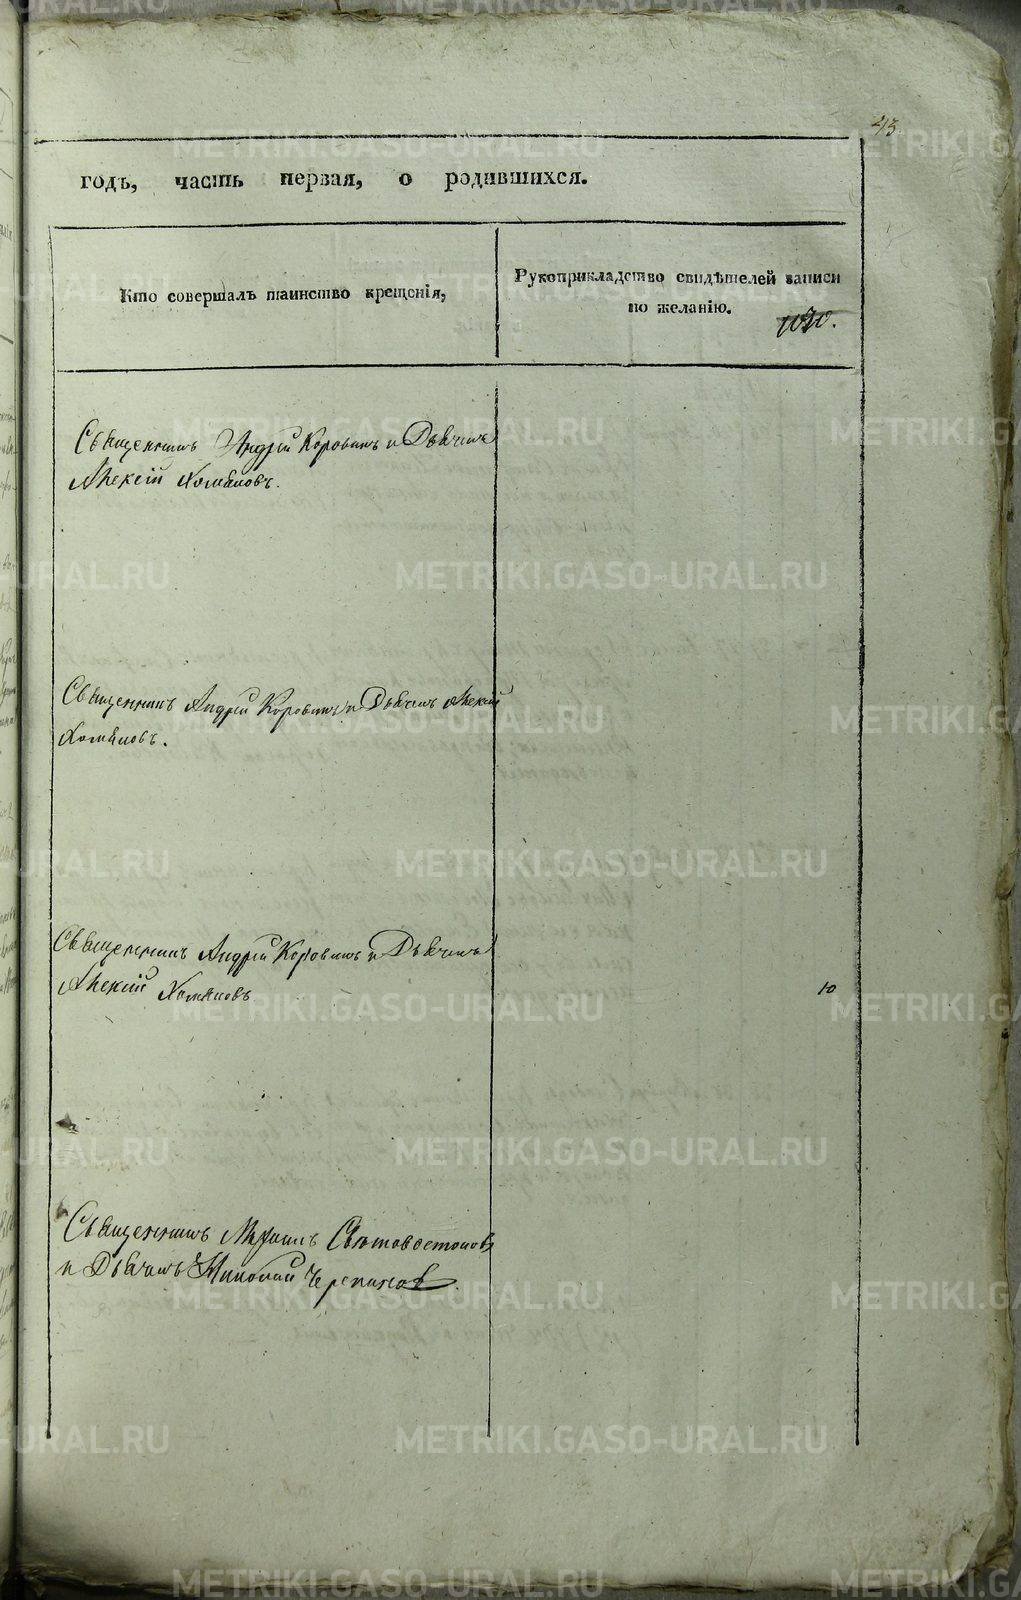 43
годъ, часть первая, о родившихся.
Кто совершалъ таинство крещенія,
Рукоприкладство свидѣтелей записи
по желанію.
Священникъ Андрей Коровинъ и Дьячекъ
Алексій Хомяковъ.
Священникъ Андрей Коровинъ и Дьячекъ Алексій
Хомяковъ.
Священникъ Андрей Коровинъ и Дьячекъ
Алексій Хомяковъ
10
Священникъ
и Дьячекъ Николай
METRIKI.GASO-URAL.RU